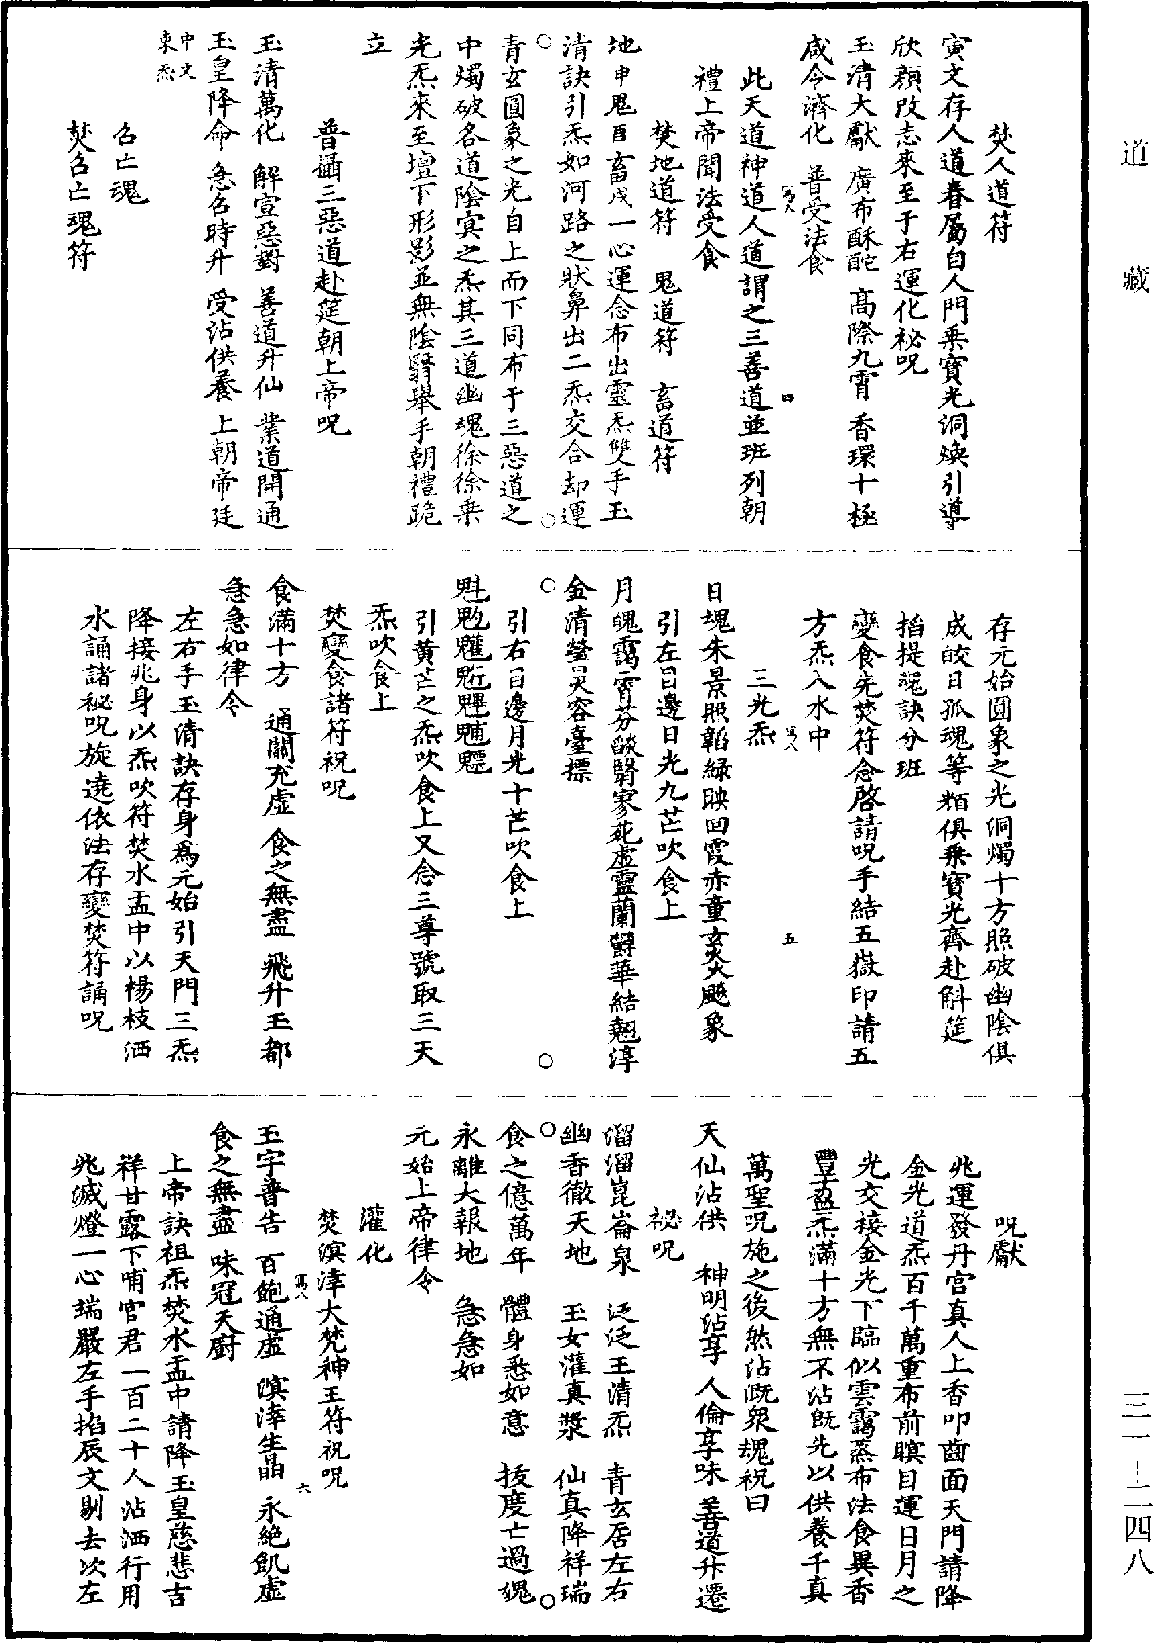 道藏
三一—二四八
焚人道符
寅文存人道眷屬自人門乘寶光洞煥引導
欣顏改志來至于右運化祕呪
玉清大獻 廣布酥酡 高際九霄 香環十極
咸令濟化 普受法食
此天道神道人道謂之三善道並班列朝
四
禮上帝聞法受食
焚地道符 鬼道符 畜道符
地申鬼酉畜戌一心運念布出靈炁雙手玉
清訣引炁如河路之狀鼻出二炁交合却運
○ ○
青玄圓象之光自上而下同布于三惡道之
中燭破各道陰㝠之炁其三道幽魂徐徐乘
光炁來至壇下形影並無陰翳舉手朝禮跪
立
普攝三惡道赴筵朝上帝呪
玉清萬化 解宣惡對 善道升仙 業道開通
玉皇降命 急召時升 受沾供養 上朝帝廷
中文
東炁
召亡魂
焚召亡魂符
存元始圓象之光洞燭十方照破幽陰俱
成皎日孤魂等類俱乘寶光齊赴斛筵
掐提魂訣分班
變食先焚符念啓請呪手結五嶽印請五
方炁入水中
五
三光炁
日魂朱景照韜綠映回霞赤童玄炎飈象
引左目邊日光九芒吹食上
月魄靄霄芬豔翳寥苑虛靈蘭鬱華結翹淳
金清瑩炅容臺摽
○ ○
引右目邊月光十芒吹食上
魁𩲃䰢魓𩳐𩳶魒
引黃芒之炁吹食上又念三尊號取三天
炁吹食上
焚變食諸符祝呪
食滿十方 通關充虛 食之無盡 飛升玉都
急急如律令
左右手玉清訣存身爲元始引天門三炁
降接兆身以炁吹符焚水盂中以楊枝洒
水誦諸祕呪旋遶依法存變焚符誦呪
呪獻
兆運發丹宫真人上香叩齒面天門請降
金光道炁百千萬重布前瞑目運日月之
光交接金光下臨似雲靄蒸布法食異香
豐盈炁滿十方無不沾旣先以供養千真
萬聖呪施之後然沾旣衆魂祝曰
天仙沾供 神明沾享 人倫享味 善道升遷
祕呪
溜溜崑崙泉 泛泛玉清炁 青玄居左右
幽香徹天地 玉女灌真漿 仙真降祥瑞
○ ○
食之億萬年 體身悉如意 拔度亡過魂
永離大報地 急急如
元始上帝律令
灌化
焚溟涬大梵神王符祝呪
六
玉字普告 百飽通虛 溟涬生晶 永絶飢虛
食之無盡 味冠天廚
上帝訣祖炁焚水盂中請降玉皇慈悲吉
祥甘露下哺官君一百二十人沾洒行用
兆滅燈一心端嚴左手掐辰文剔去次左